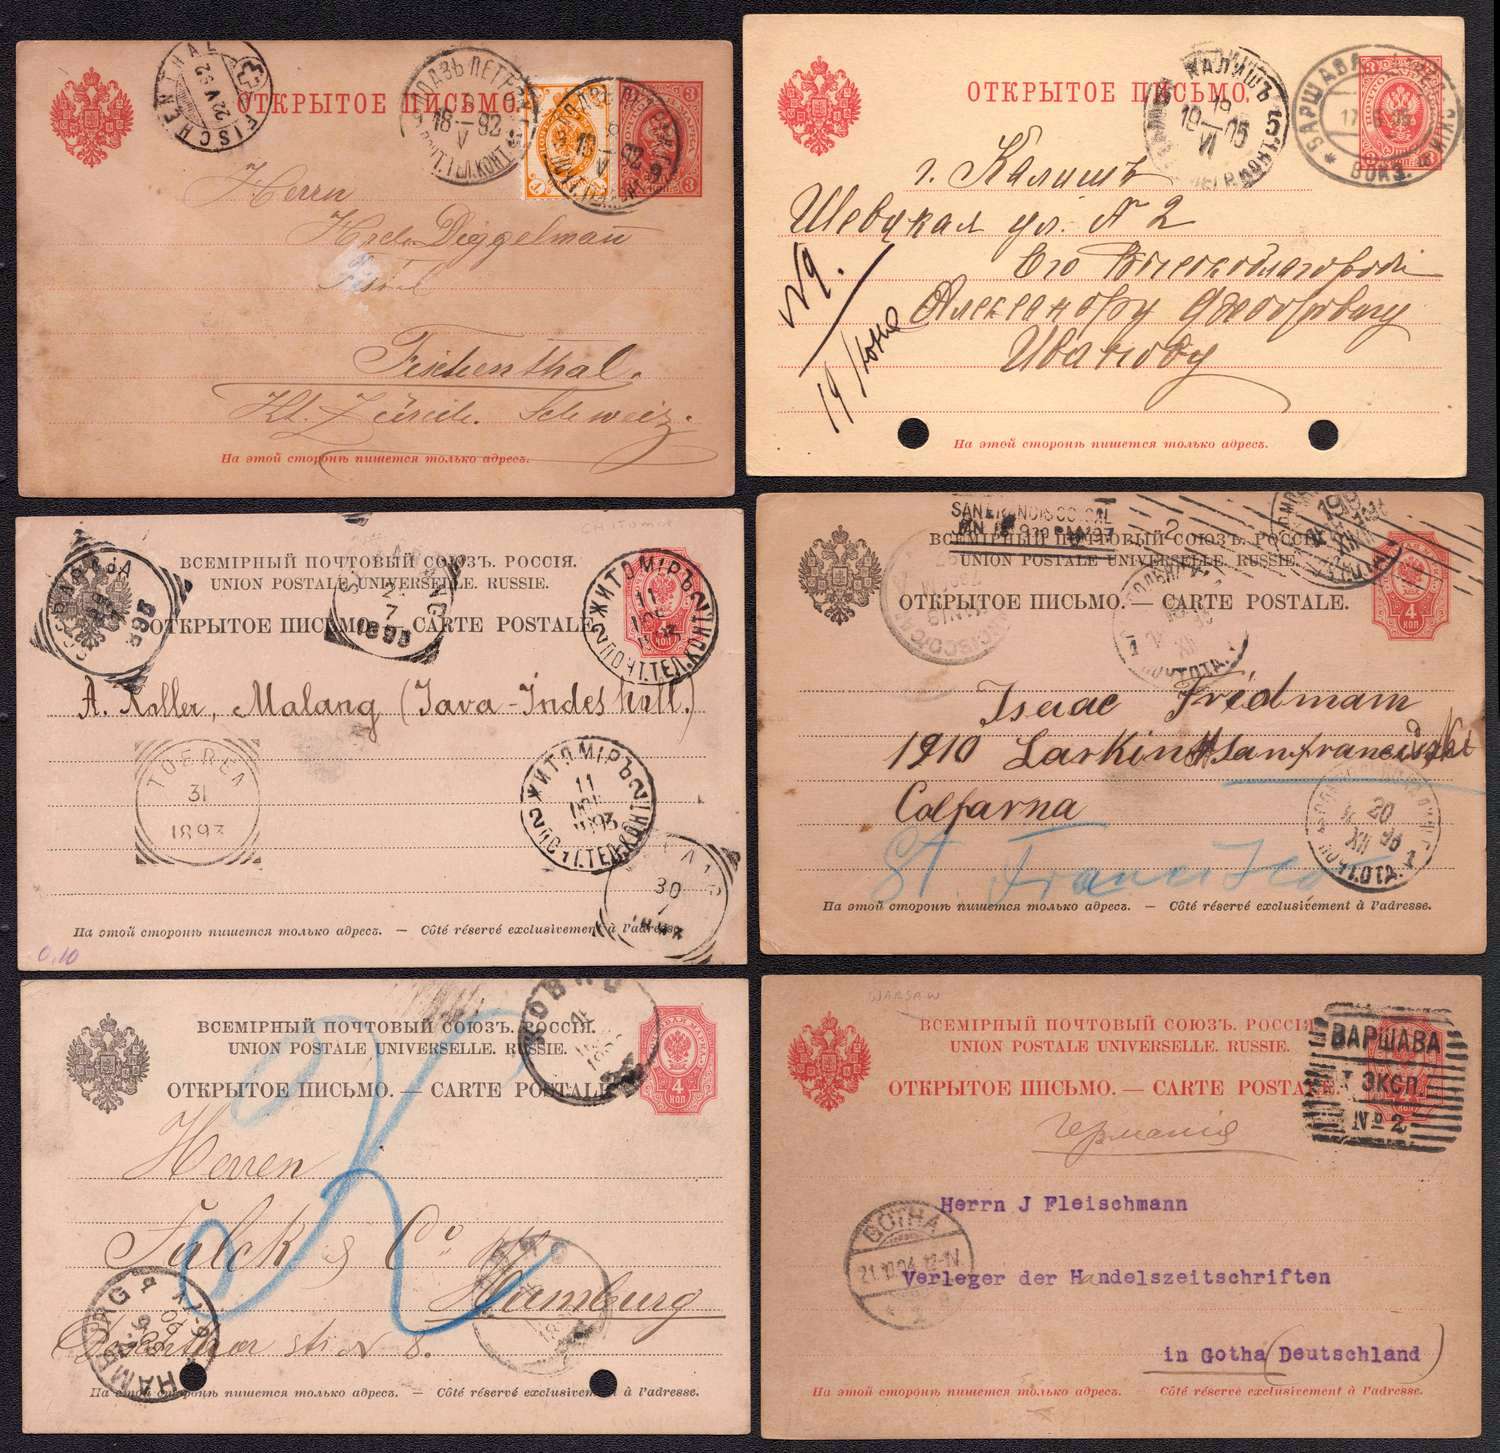 ОТКРЫТОЕ ПИСЬМО.
FISCHENTHAL
22 V 92
18 92
V
3
3
1
Herrn
Diggelman
Fischenthal.
Kt. Zürich. Schweiz.
На этой сторонѣ пишется только адресъ.
ОТКРЫТОЕ ПИСЬМО.
КАЛИШЪ
19
VI
ВАРШАВА
ВОКЗ.
3
г. Калишъ
ул. № 2
Его Высокоблагородію
Александру Федоровичу
Иванову
№ 9.
19
На этой сторонѣ пишется только адресъ.
ВСЕМІРНЫЙ ПОЧТОВЫЙ СОЮЗЪ. РОССІЯ.
UNION POSTALE UNIVERSELLE. RUSSIE.
ОТКРЫТОЕ ПИСЬМО. — CARTE POSTALE.
SOERABAJA
1893
7
1893
ЖИТОМІРЪ
11
1893
ПОЧТ. ТЕЛ. КОНТ.
4
КОП
A. Koller, Malang (Java-Indes holl.)
TOEREN
31
1893
ЖИТОМІРЪ
11
1893
ПОЧТ. ТЕЛ. КОНТ.
30
7
0.10
На этой сторонѣ пишется только адресъ. — Côté réservé exclusivement à l'adresse.
SAN FRANCISCO, CAL
2
ВСЕМІРНЫЙ ПОЧТОВЫЙ СОЮЗЪ. РОССІЯ.
UNION POSTALE UNIVERSELLE. RUSSIE.
ОТКРЫТОЕ ПИСЬМО. — CARTE POSTALE.
4
КОП
Isaac Fridmam
1910 Larkin St sanfrancisko
Colfarna
St. Francisco
20
XII 96
На этой сторонѣ пишется только адресъ. — Côté réservé exclusivement à l'adresse.
ВСЕМІРНЫЙ ПОЧТОВЫЙ СОЮЗЪ. РОССІЯ.
UNION POSTALE UNIVERSELLE. RUSSIE.
ОТКРЫТОЕ ПИСЬМО. — CARTE POSTALE.
КОВНО
4
КОП
Herren
Falck & Co
Hamburg
8.
HAMBURG
На этой сторонѣ пишется только адресъ. — Côté réservé exclusivement à l'adresse.
WARSAW
ВСЕМІРНЫЙ ПОЧТОВЫЙ СОЮЗЪ. РОССІЯ.
UNION POSTALE UNIVERSELLE. RUSSIE.
ОТКРЫТОЕ ПИСЬМО. — CARTE POSTALE.
ВАРШАВА
ЭКСП.
№ 2
Германія
Herrn J Fleischmann
GOTHA
Verleger der Handelszeitschriften
in Gotha (Deutschland)
На этой сторонѣ пишется только адресъ. — Côté réservé exclusivement à l'adresse.